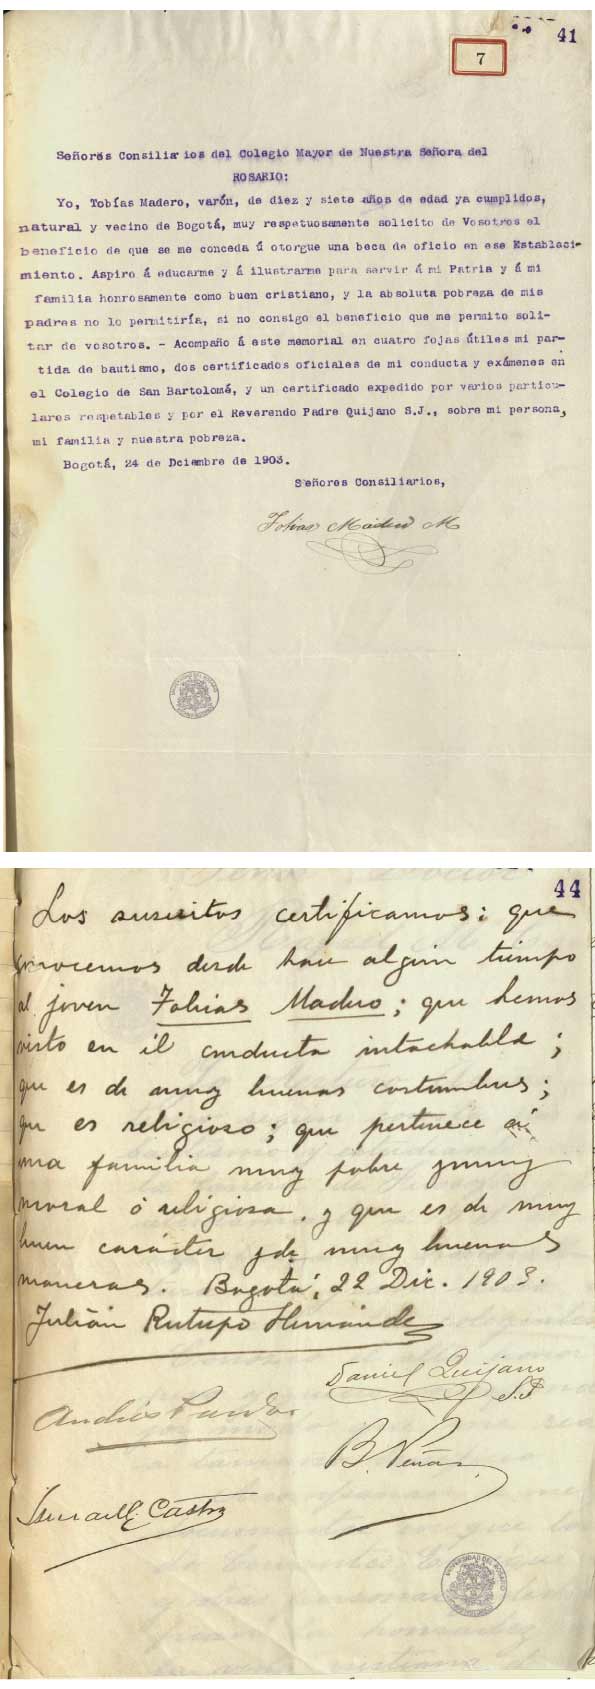 41
7
Señores Consiliarios del Colegio Mayor de Nuestra Señora del
ROSARIO:
Yo, Tobías Madero, varón, de diez y siete años de edad ya cumplidos,
natural y vecino de Bogotá, muy respetuosamente solicito de Vosotros el
beneficio de que se me conceda ú otorgue una beca de oficio en ese Estableci-
miento. Aspiro á educarme y á ilustrarme para servir á mi Patria y á mi
familia honrosamente como buen cristiano, y la absoluta pobreza de mis
padres no lo permitiría, si no consigo el beneficio que me permito soli-
tar de vosotros. - Acompaño á este memorial en cuatro fojas útiles mi par-
tida de bautismo, dos certificados oficiales de mi conducta y exámenes en
el Colegio de San Bartolomé, y un certificado expedido por varios particu-
lares respetables y por el Reverendo Padre Quijano S.J., sobre mi persona,
mi familia y nuestra pobreza.
Bogotá, 24 de Dciembre de 1903.
Señores Consiliarios,
Tobias Madero M
UNIVERSIDAD DEL ROSARIO
44
Los suscritos certificamos: que
conocemos desde hace algún tiempo
al joven Tobias Madero; que hemos
visto en él conducta intachable;
que es de muy buenas costumbres;
que es religioso; que pertenece á
una familia muy pobre y muy
moral ó religiosa, y que es de muy
buen carácter y de muy buenas
maneras. Bogotá, 22 Dic. 1903.
Julián Restrepo Hernández
Daniel Quijano
S.J
Andrés Pardo
B. Peña
Ismael E. Castro
UNIVERSIDAD DEL ROSARIO